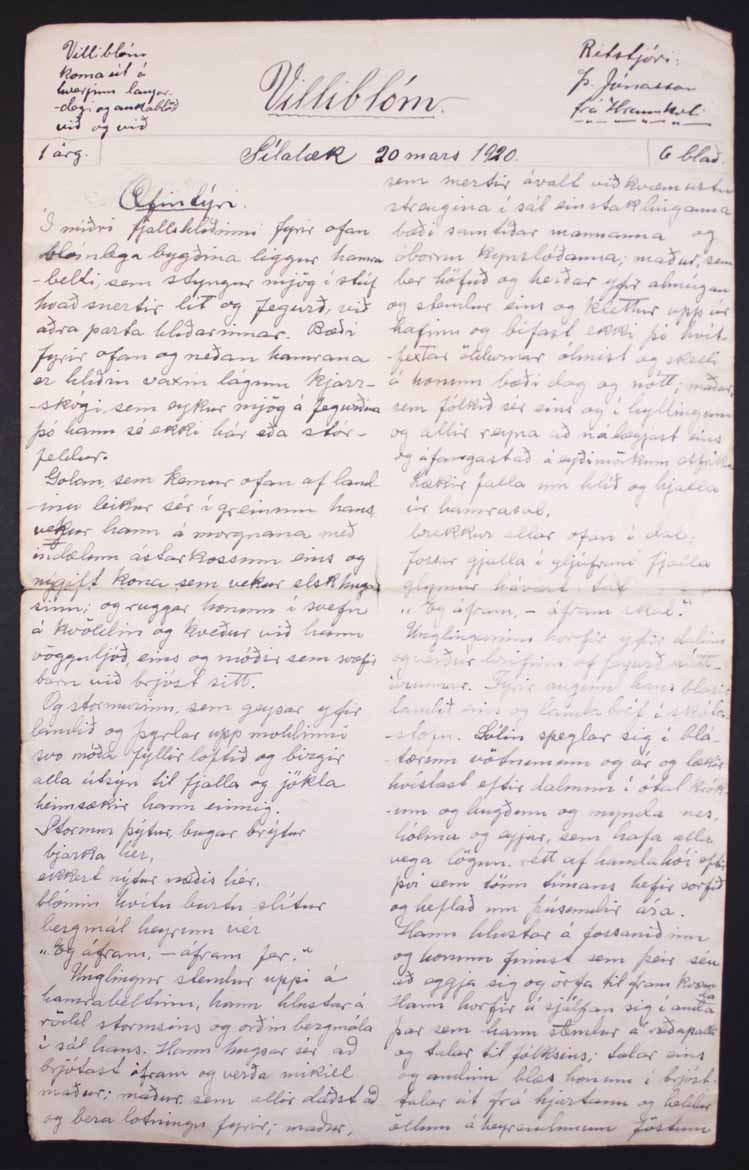 Villiblóm
koma út á
hverjum laugar-
-degi og aukablöð
við og við
Villiblóm.
Ritstjóri:
Þ. Jónasson
frá Hraunkoti
1 árg.
Sílalæk 20 mars 1920.
6 blað.
Æfintýri.
Í miðri fjallshlíðinni fyrir ofan
blómlega bygðina liggur hamra
-belti, sem styngur mjög í stúf
hvað snertir lit og fegurð, við
aðra parta hlíðarinnar. Bæði
fyrir ofan og neðan hamrana
er hlíðin vaxin lágum kjarr-
-skógi, sem eykur mjög á fegurðina
þó hann sé ekki hár eða stór-
feldur.
Golan, sem kemur ofan af land
-inu leikur sér í greinum hans,
vekur hann á morgnana með
indælum ástarkossum eins og
nygift kona sem vekur elskhuga
sinn; og ruggar honum í svefn
á kvöldin og kveður við hann
vögguljóð, eins og móðir sem svæfir
barn við brjóst sitt.
Og stormurinn, sem geysar yfir
landið og þyrlar upp moldinni
svo móða fyllir loftið og birgir
alla útsýn til fjalla og jökla
heimsækir hann einnig.
Stormur þýtur, bugar brýtur
bjarka her,
ekkert nýtur næðis hér.
blómin hvítu burtu slítur
bergmál heyrum vér
"Og áfram, - áfram fer."
Unglingur stendur uppi á
hamrabeltinu, hann hlustar á
rödd stormsins og orðin bergmála
í sál hans. Hann hugsar sér að
brjótast áfram og verða mikill
maður; maður sem allir dáðst að
og bera lotningu fyrir; maður,
sem snertir ávalt viðkvæmustu
strengina í sál einstaklinganna
bæði samtíðar mannanna og
óborinna kynslóðanna; maður, sem
ber höfuð og herðar yfir almúgan
og stendur eins og klettur upp úr
hafinu og bifast ekki þó hvít-
fextar öldurnar ólmist og skelli
á honum bæði dag og nótt; maður,
sem fólkið sér eins og í hyllingum
og allir reyna að nálægjast eins
og áfangastað á eyðimörkum
Lækir falla um hlíð og hjalla
úr hamrasal,
brekkur allar ofan í dal;
fossar gjalla í gljúfrum fjalla
glymur hávært tal
"Og áfram, - áfram skal."
Unglingurinn horfir yfir dalinn
og verður hrifinn af fegurð nátt-
úrunnar. Fyrir augum hans blasir
landið eins og landabréf í skóla-
-stofu. Sólin speglar sig í blá-
-tærum vötnunum og ár og lækir
hvíslast eftir dalnum í ótal krók
-um og bugðum og mynda nes,
hólma og eyjar, sem hafa alla
vega lögun, rétt af handahófi eftir
því sem tönn tímans hefir sorfið
og heflað um þúsundir ára.
Hann hlustar á fossaniðinn
og honum finnst sem þeir séu
að eggja sig og örfa til framkvæmda
Hann horfir á sjálfan sig í anda
þar sem hann stendur á ræðupalli
og talar til fólksins; talar eins
og andinn blæs honum í brjóst.
talar út frá hjartanu og heldur
öllum áheyrendunum föstum